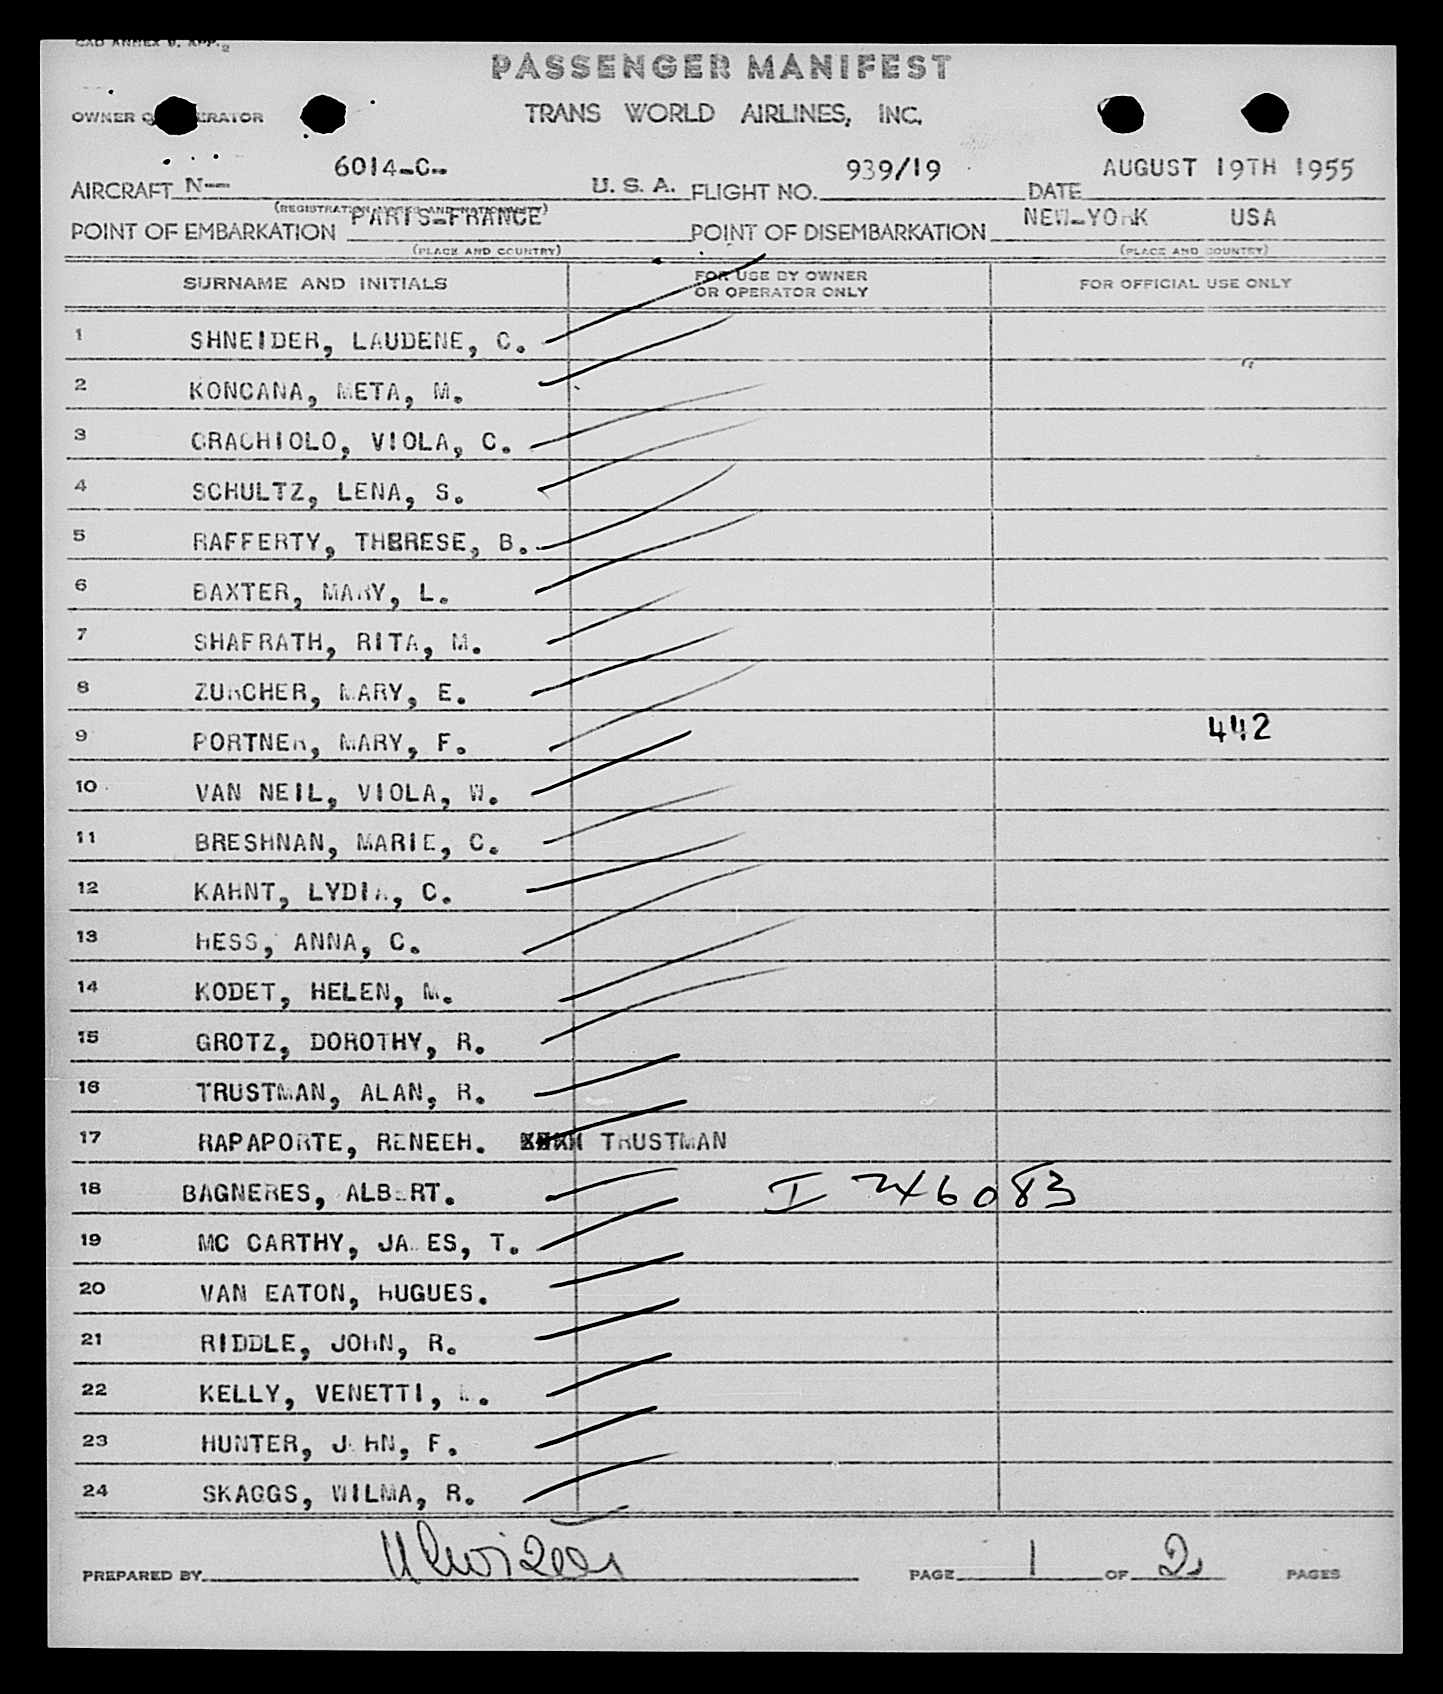 CAO ANNEX 9, APP. 2
PASSENGER MANIFEST
OWNER OPERATOR TRANS WORLD AIRLINES, INC.
AIRCRAFT N-- 6014-C-- U. S. A. FLIGHT NO. 939/19 DATE AUGUST 19TH 1955
(REGISTRATION MARKS AND NATIONALITY)
POINT OF EMBARKATION PARIS-FRANCE POINT OF DISEMBARKATION NEW-YORK USA
(PLACE AND COUNTRY) (PLACE AND COUNTRY)
SURNAME AND INITIALS FOR USE BY OWNER OR OPERATOR ONLY FOR OFFICIAL USE ONLY
1 SHNEIDER, LAUDENE, C.
2 KONCANA, META, M.
3 CRACHIOLO, VIOLA, C.
4 SCHULTZ, LENA, S.
5 RAFFERTY, THERESE, B.
6 BAXTER, MARY, L.
7 SHAFRATH, RITA, M.
8 ZURCHER, MARY, E.
9 PORTNER, MARY, F. 442
10 VAN NEIL, VIOLA, W.
11 BRESHNAN, MARIE, C.
12 KAHNT, LYDIA, C.
13 HESS, ANNA, C.
14 KODET, HELEN, M.
15 GROTZ, DOROTHY, R.
16 TRUSTMAN, ALAN, R.
17 RAPAPORTE, RENEEH. TRUSTMAN
18 BAGNERES, ALBERT. I 746083
19 MC CARTHY, JAMES, T.
20 VAN EATON, HUGUES.
21 RIDDLE, JOHN, R.
22 KELLY, VENETTI, .
23 HUNTER, JOHN, F.
24 SKAGGS, WILMA, R.
PREPARED BY PAGE 1 OF 2 PAGES